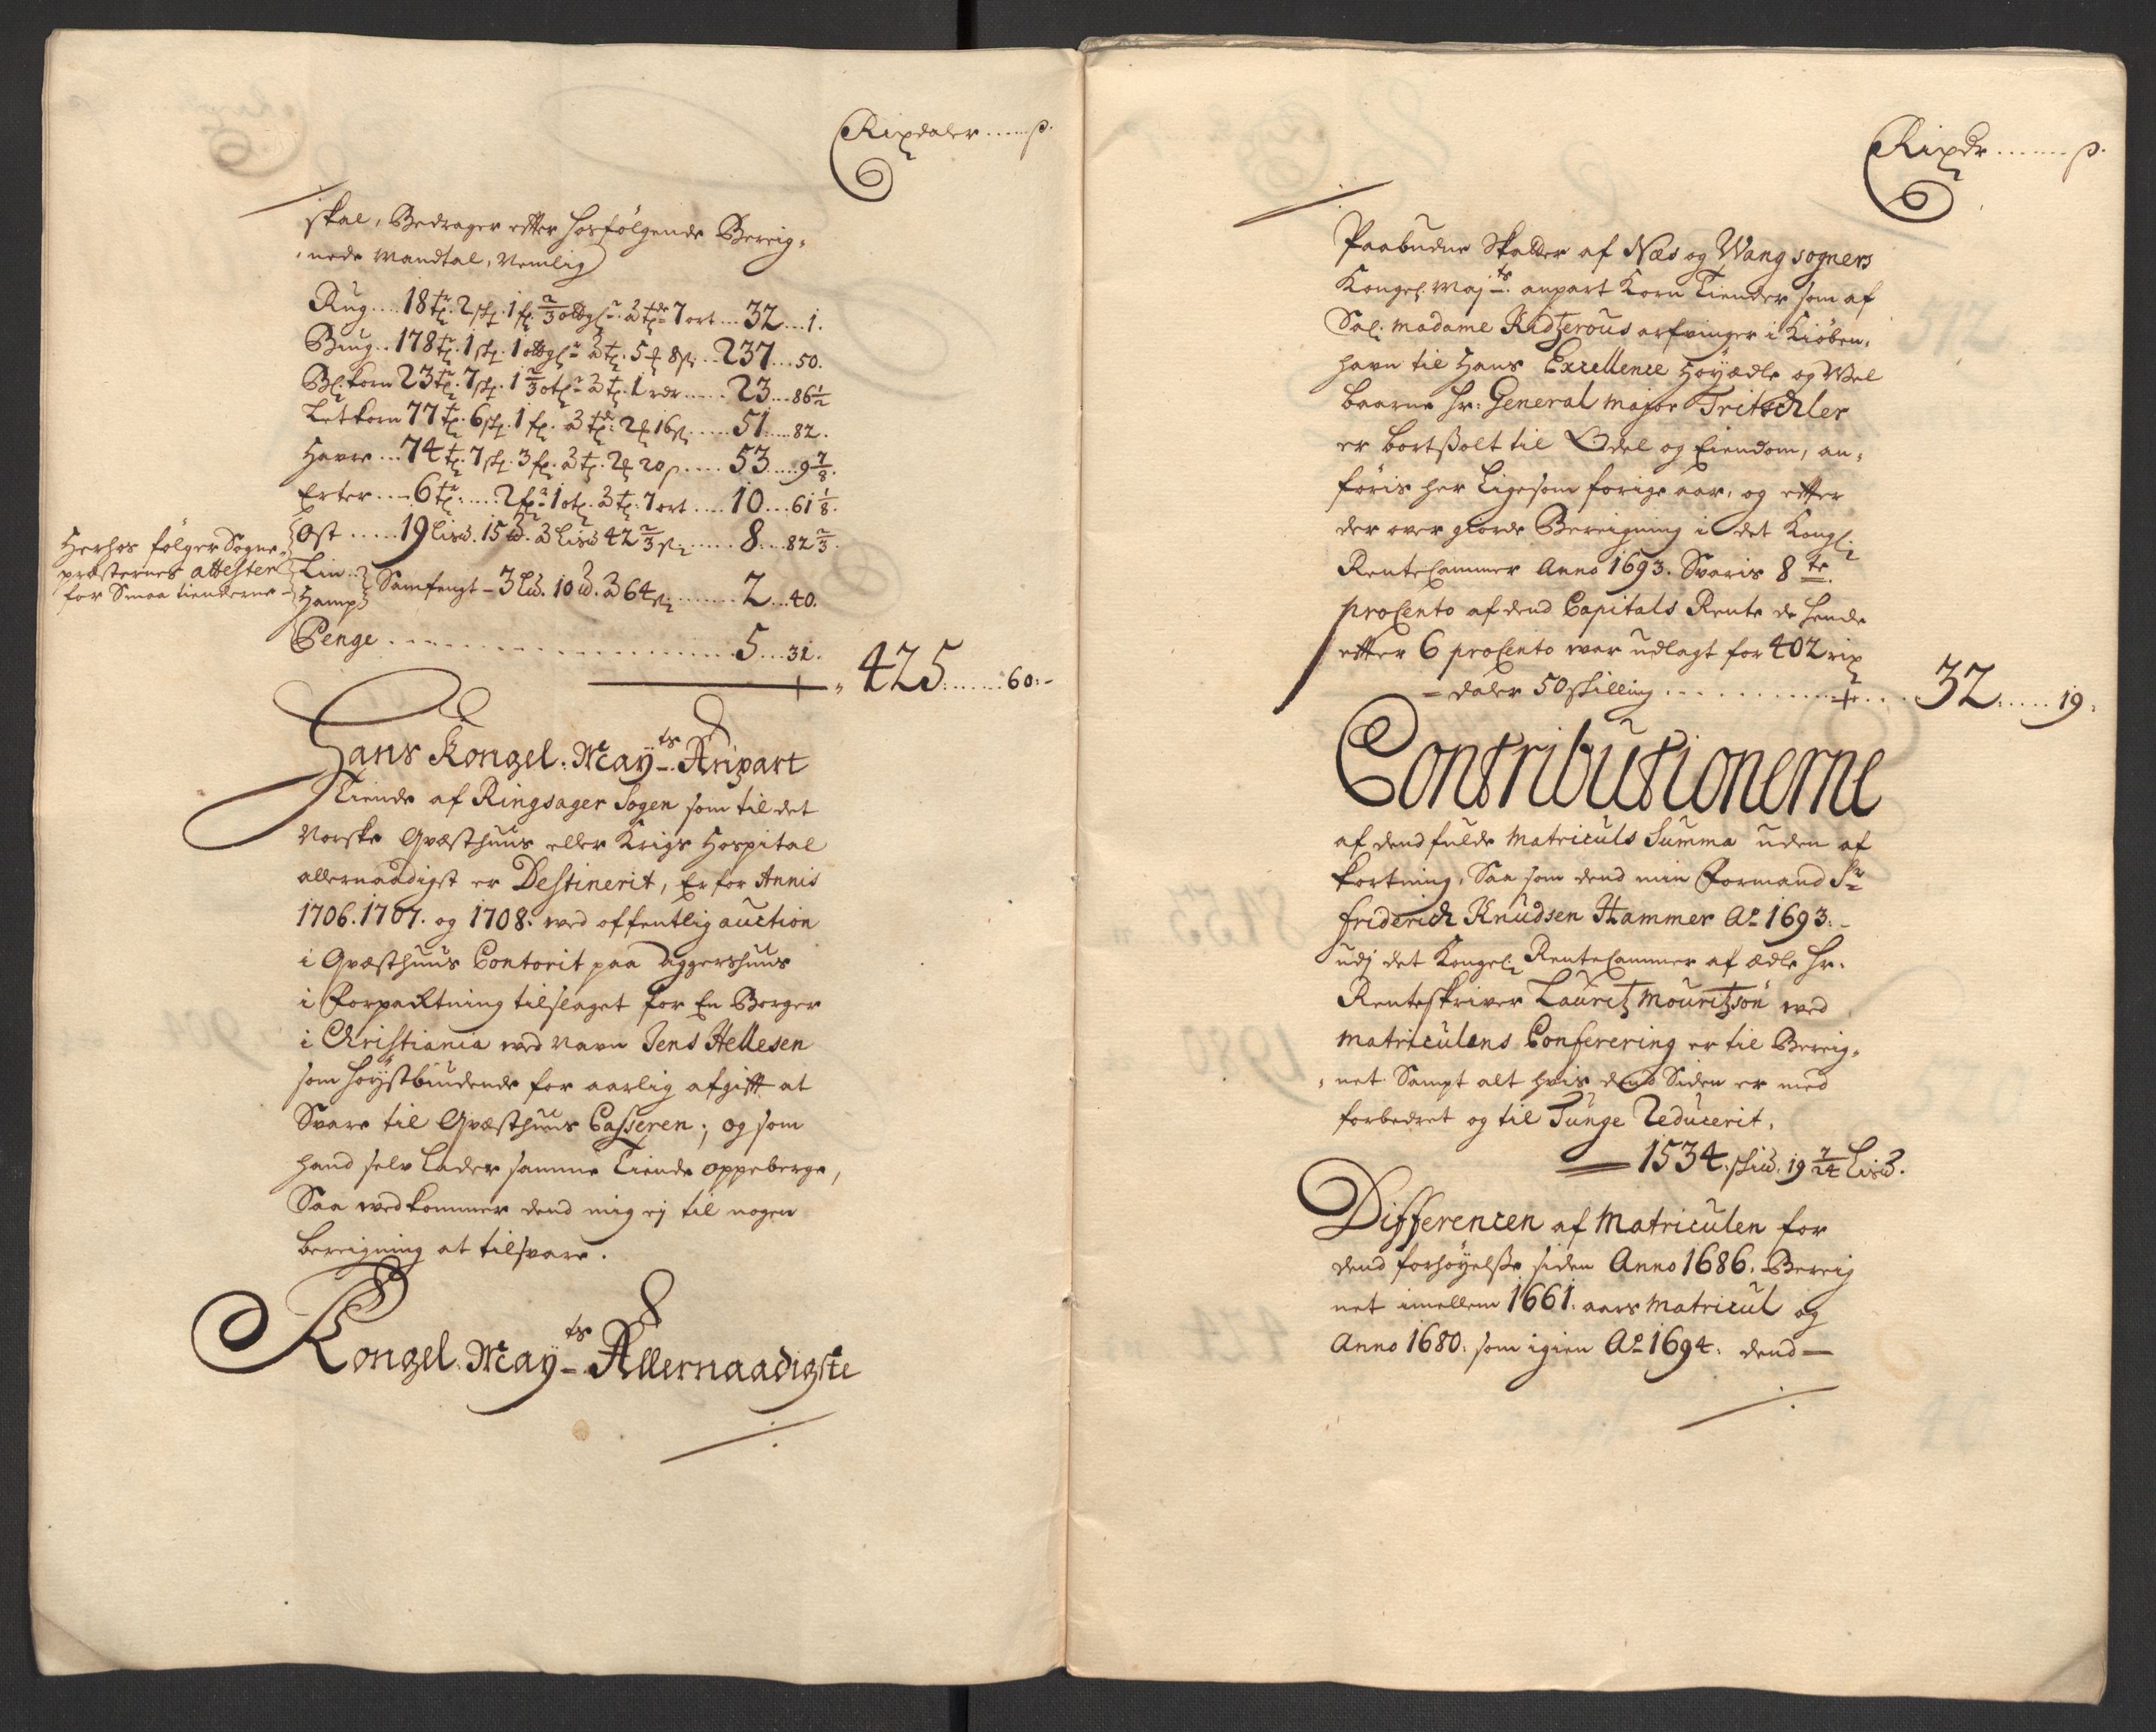 Rixdaler ..... s.
skal, Bedrager efter hosfölgende Bereig-
nede Mandtal, Nemlig
Rug .... 18 tr. 2 sk. 1 f. 2/3 ottg. à td 7 ort ... 32 ... 1.
Biug .. 178 t. 1 sk. 1 ottg. à t. 5 8 s. .. 237 ... 50.
Bl: korn 23 t. 7 sk. 1 2/3 ot. à t. 1 rdr ...... 23 ... 86 1/2
Letkorn 77 t. 6 sk. 1 f. à td. 2 16 s. ...... 51 ..... 82.
Havre ... 74 t. 7 sk. 3 f. à t. 2 20 s ..... 53 ..... 9 7/8.
Erter .... 6 t. ..... 2 f. 1 ot. à t. 7 ort ..... 10 ... 61 1/8.
Ost ...... 19 Lisd. 15 d. à Lisd 42 2/3 s. ...... 8 .... 82 2/3.
Herhos fölger Sogne-
præsternes attester
for Smaa tienderne
Lin ..
Hamp
Samfengt - 3 Ld. 10 d. à 64 s. ........ 2 ... 40.
Penge .................... 5 ... 32.
425 ....... 60:-
Hans Kongel: Mayts Anpart
Tiende af Ringsager Sogen som til det
Norske Qvæsthuus eller Krigs Hospital
allernaadigst er Destinerit, Er for Annis
1706. 1707. og 1708. ved offentlig auction
i Qvæsthuus Contorit paa Aggershuus
i Forpacktning tilslaget for En Borger
i Christiania ved Navn Jens Hellesen
som höystbiudende for aarlig afgifft at
Svare til Qvæsthuus Casseren; og som
hand selv Lader samme Tiende oppeberge,
Saa vedkommer dend mig ej til nogen
bereigning at tilsvare.
Kongel. Mayts Allernaadigste
Rixdr ....... s.
Paabudne Skatter af Næs og Wang sogners
Kongel. Majts. anpart Korn Tiender som af
Sal. Madame Ridtzerous arfvinger i Kiöben-
havn til Hans Excellence Höyædle og Wel
baarne Hr: General major Tritschler
er bortsolt til Odel og Eiendom, an-
föris her Ligesom forige aar, og efter
der over giorde Bereigning i det Kongl:
RenteCammer Anno 1693. Svaris 8te
proCento af dend Capitals Rente de hende
efter 6 proCento var udlagt for 402 rix
- daler 50 skilling ............. 32 ..... 19.
Contributionerne
af dend fulde Matriculs Summa uden af
kortning, Saa som dend min Formand Sr
Friderich Knudsen Hammer Ao 1693.-
udj det Kongel: RenteCammer af ædle Hr.
Renteskriver Lauritz Mouritzsön ved
Matriculens Conferering er til Bereig-
net Sampt alt hvis dend Siden er med
forbedret og til Tunge Reducerit,
1534. skid. 19 7/24 Lisd.
Differencen af Matriculen for
dend forhöyelsse siden Anno 1686. Bereig
net imellem 1661. aars Matricul og
Anno 1680. som igien Ao 1694. dend -